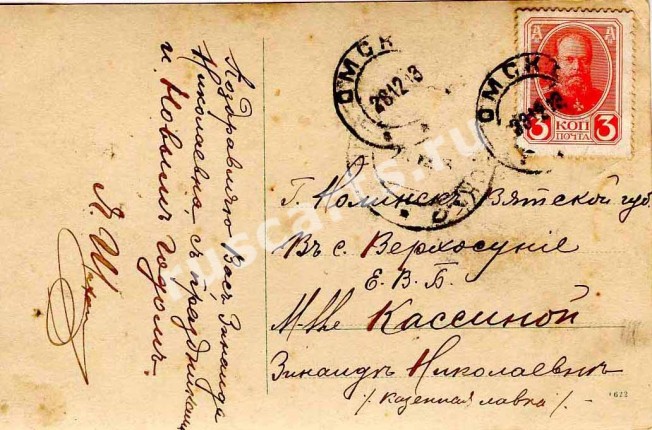 Поздравляю Васъ Зинаида
Николаевна съ праздниками
и Новымъ Годомъ.
А. Ш
ОМСКЪ
28 12 13
ОМСКЪ
3 КОП 3
ПОЧТА
Г. Нолинскъ Вятской губ.
Въ с. Верхосуніе
Е. В. Б.
M-lle Кассиной
Зинаидѣ Николаевнѣ
/ Казенная лавка /.
ruscards.ru